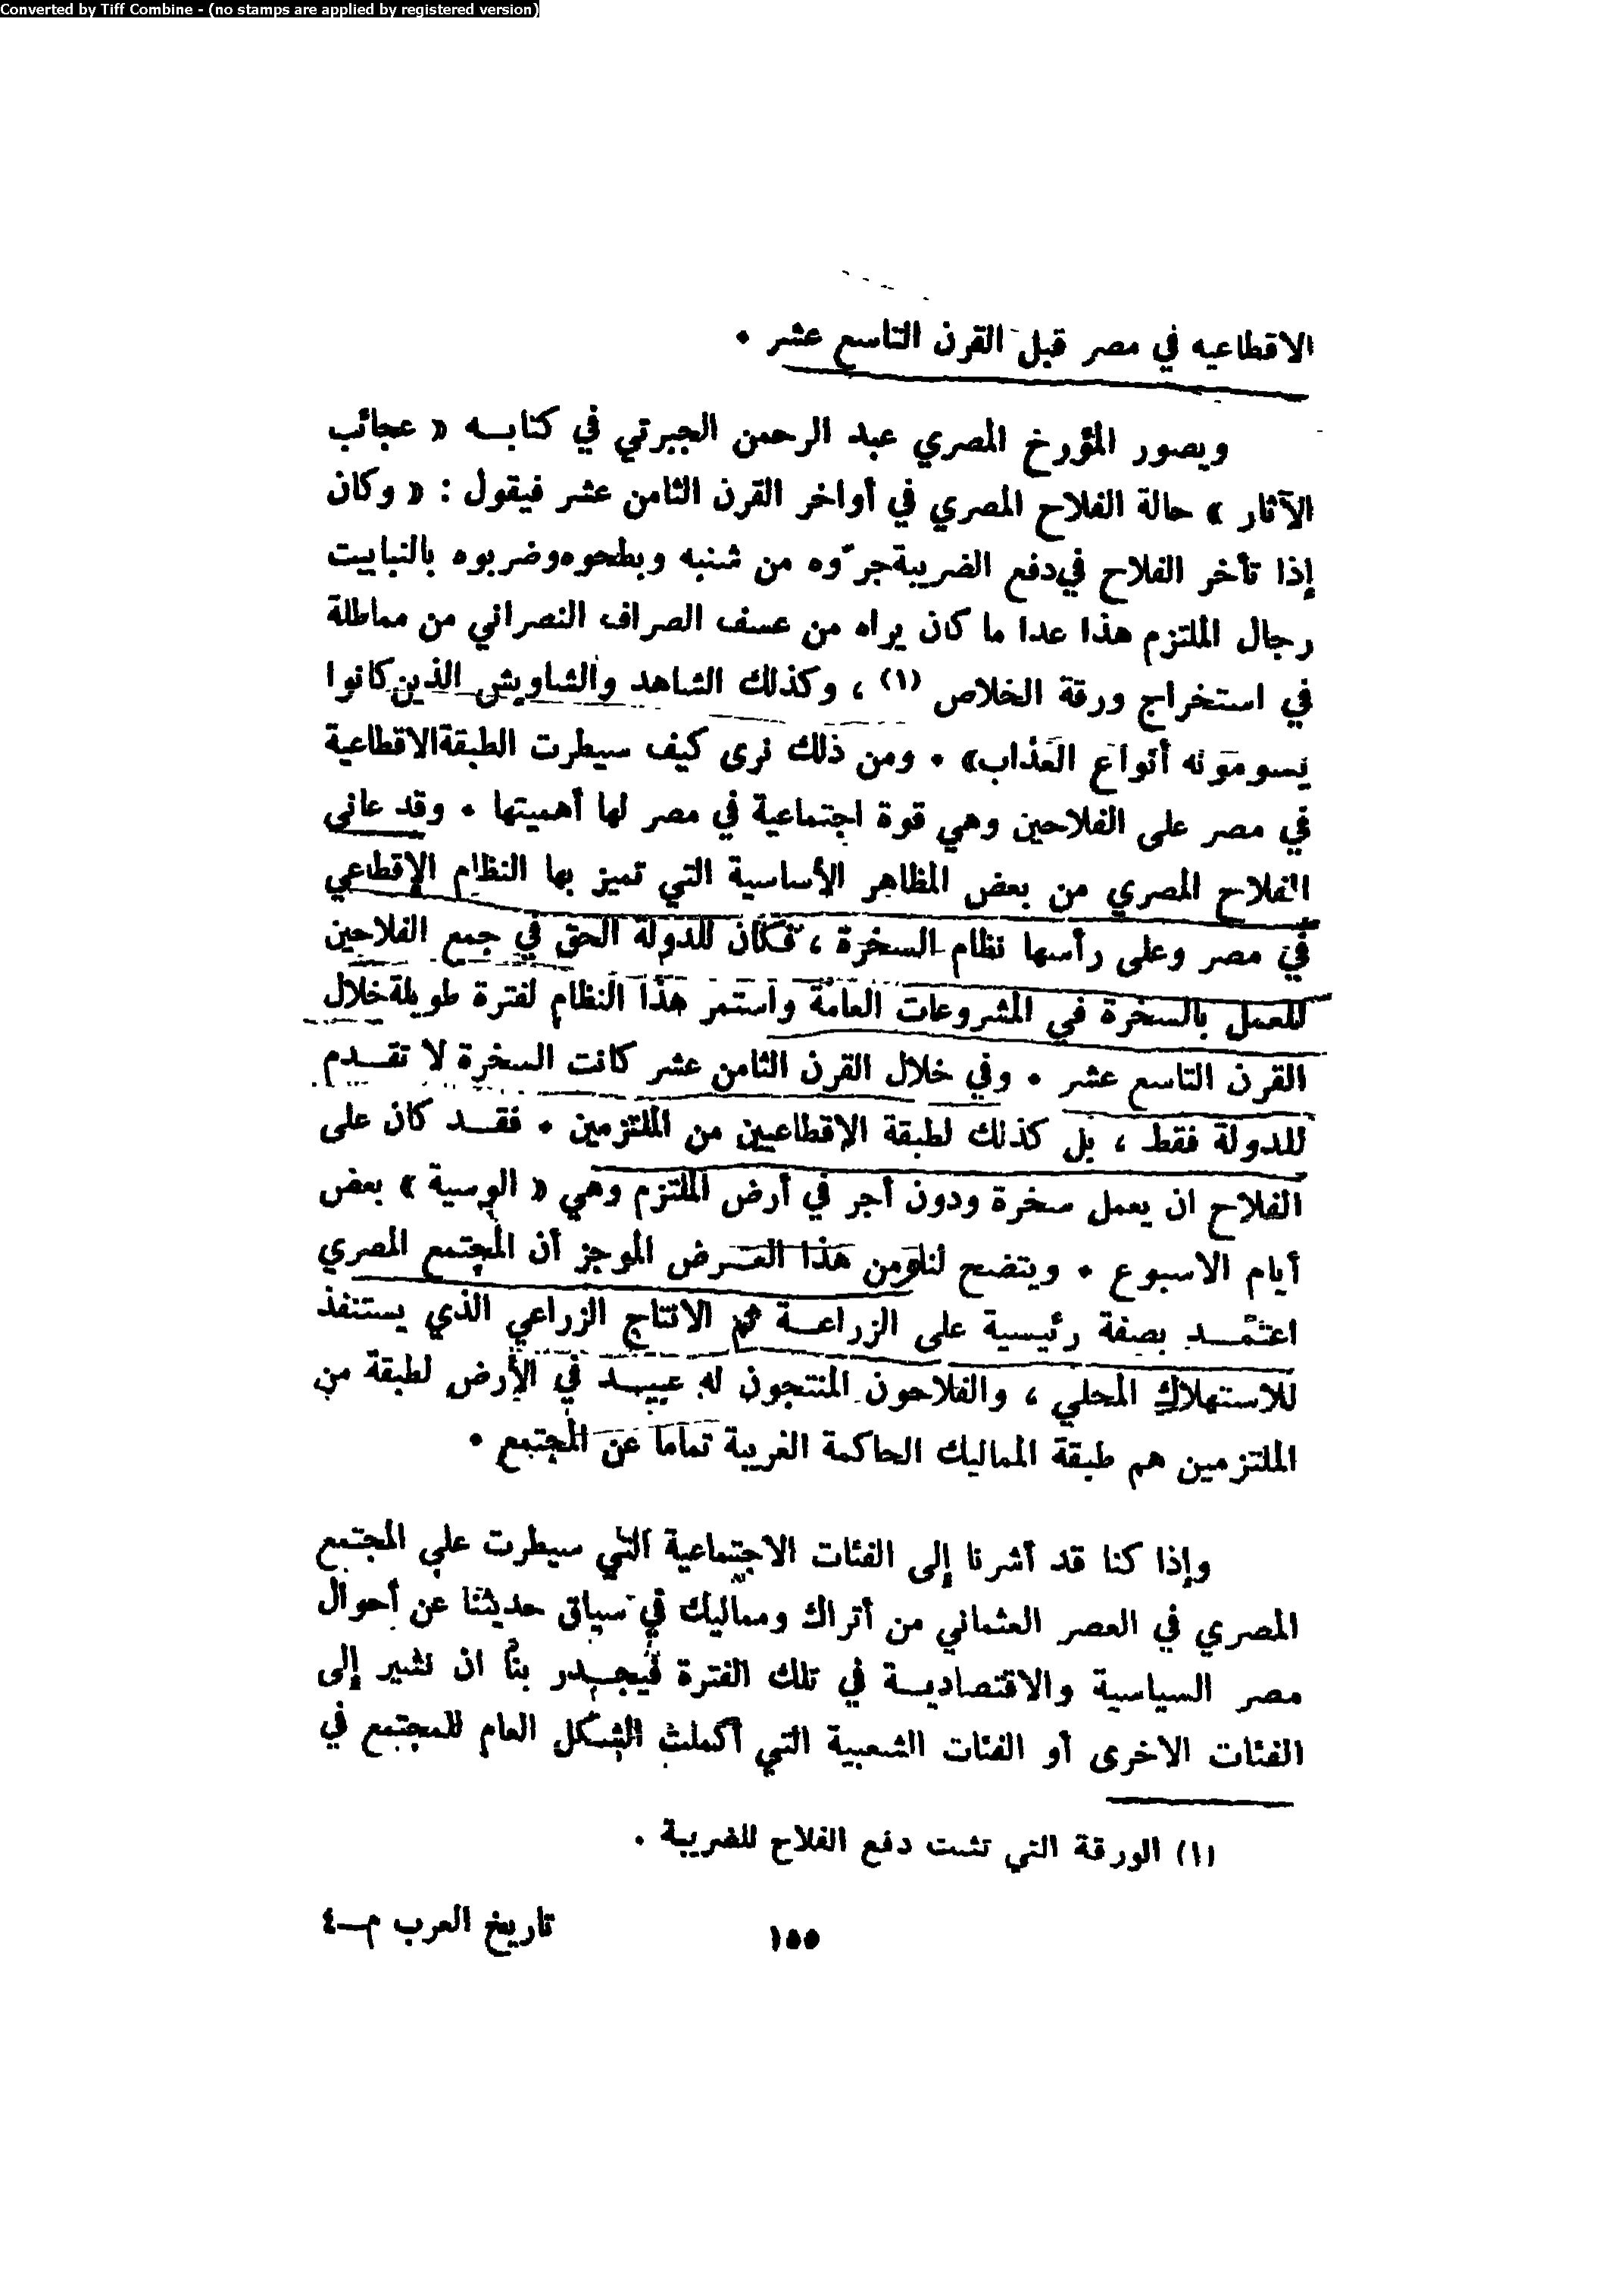 Converted by Tiff Combine - (no stamps are applied by registered version)
الاقطاعيه في مصر قبل القرن التاسع عشر ٠
ويصور المؤرخ المصري عبد الرحمن الجبرتي في كتابـه « عجائب
الآثار » حالة الفلاح المصري في أواخر القرن الثامن عشر فيقول : « وكان
إذا تأخر الفلاح في دفع الضريبة جرّوه من شنبه وبطحوه وضربوه بالنبابيت
رجال الملتزم هذا عدا ما كان يراه من عسف الصراف النصراني من مماطلة
في استخراج ورقة الخلاص (١) ، وكذلك الشاهد والشاويش الذين كانوا
يسومونه أنواع العذاب» ٠ ومن ذلك نرى كيف سيطرت الطبقة الاقطاعية
في مصر على الفلاحين وهي قوة اجتماعية في مصر لها أهميتها ٠ وقد عانى
الفلاح المصري من بعض المظاهر الأساسية التي تميز بها النظام الإقطاعي
في مصر وعلى رأسها نظام السخرة ، فكان للدولة الحق في جمع الفلاحين
للعمل بالسخرة في المشروعات العامة واستمر هذا النظام لفترة طويلة خلال
القرن التاسع عشر ٠ وفي خلال القرن الثامن عشر كانت السخرة لا تقـدم
للدولة فقط ، بل كذلك لطبقة الإقطاعيين من الملتزمين ٠ فقـد كان على
الفلاح ان يعمل سخرة ودون أجر في أرض الملتزم وهي « الوسية » بعض
أيام الاسبوع ٠ ويتضح لنا من هذا العـرض الموجز أن المجتمع المصري
اعتمـد بصفة رئيسية على الزراعـة ثم الانتاج الزراعي الذي يستنفذ
للاستهلاك المحلي ، والفلاحون المنتجون له عبيـد في الأرض لطبقة من
الملتزمين هم طبقة المماليك الحاكمة الغريبة تماما عن المجتمع ٠
وإذا كنا قد أشرنا إلى الفئات الاجتماعية التي سيطرت على المجتمع
المصري في العصر العثماني من أتراك ومماليك في سياق حديثنا عن أحوال
مصر السياسية والاقتصاديـة في تلك الفترة فيجـدر بنا ان نشير إلى
الفئات الاخرى أو الفئات الشعبية التي أكملت الشكل العام للمجتمع في
(١) الورقة التي تثبت دفع الفلاح للضريبة ٠
١٥٥
تاريخ العرب م ــ ٤